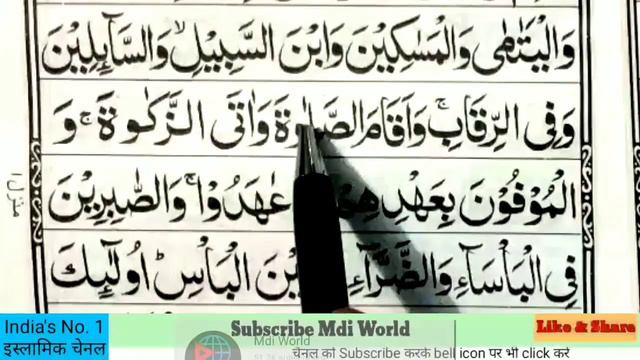 وَالْيَتٰمٰى وَالْمَسٰكِيْنَ وَابْنَ السَّبِيْلِۙ وَالسَّآئِلِيْنَ
وَفِى الرِّقَابِۚ وَاَقَامَ الصَّلٰوةَ وَاٰتَى الزَّكٰوةَۚ وَ
الْمُوْفُوْنَ بِعَهْدِهِمْ عٰهَدُوْاۚ وَالصّٰبِرِيْنَ
فِى الْبَاْسَآءِ وَالضَّرَّآءِ الْبَاْسِؕ اُولٰٓئِكَ
منزل ١
India's No. 1
इस्लामिक चेनल
Subscribe Mdi World
Mdi World
चेनल को Subscribe करके bell icon पर भी click करे
Like & Share